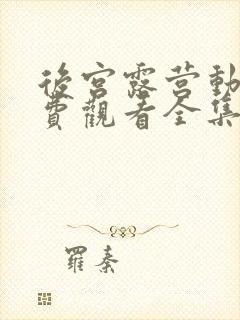 後宮露营動
費觀看全集
羅秦